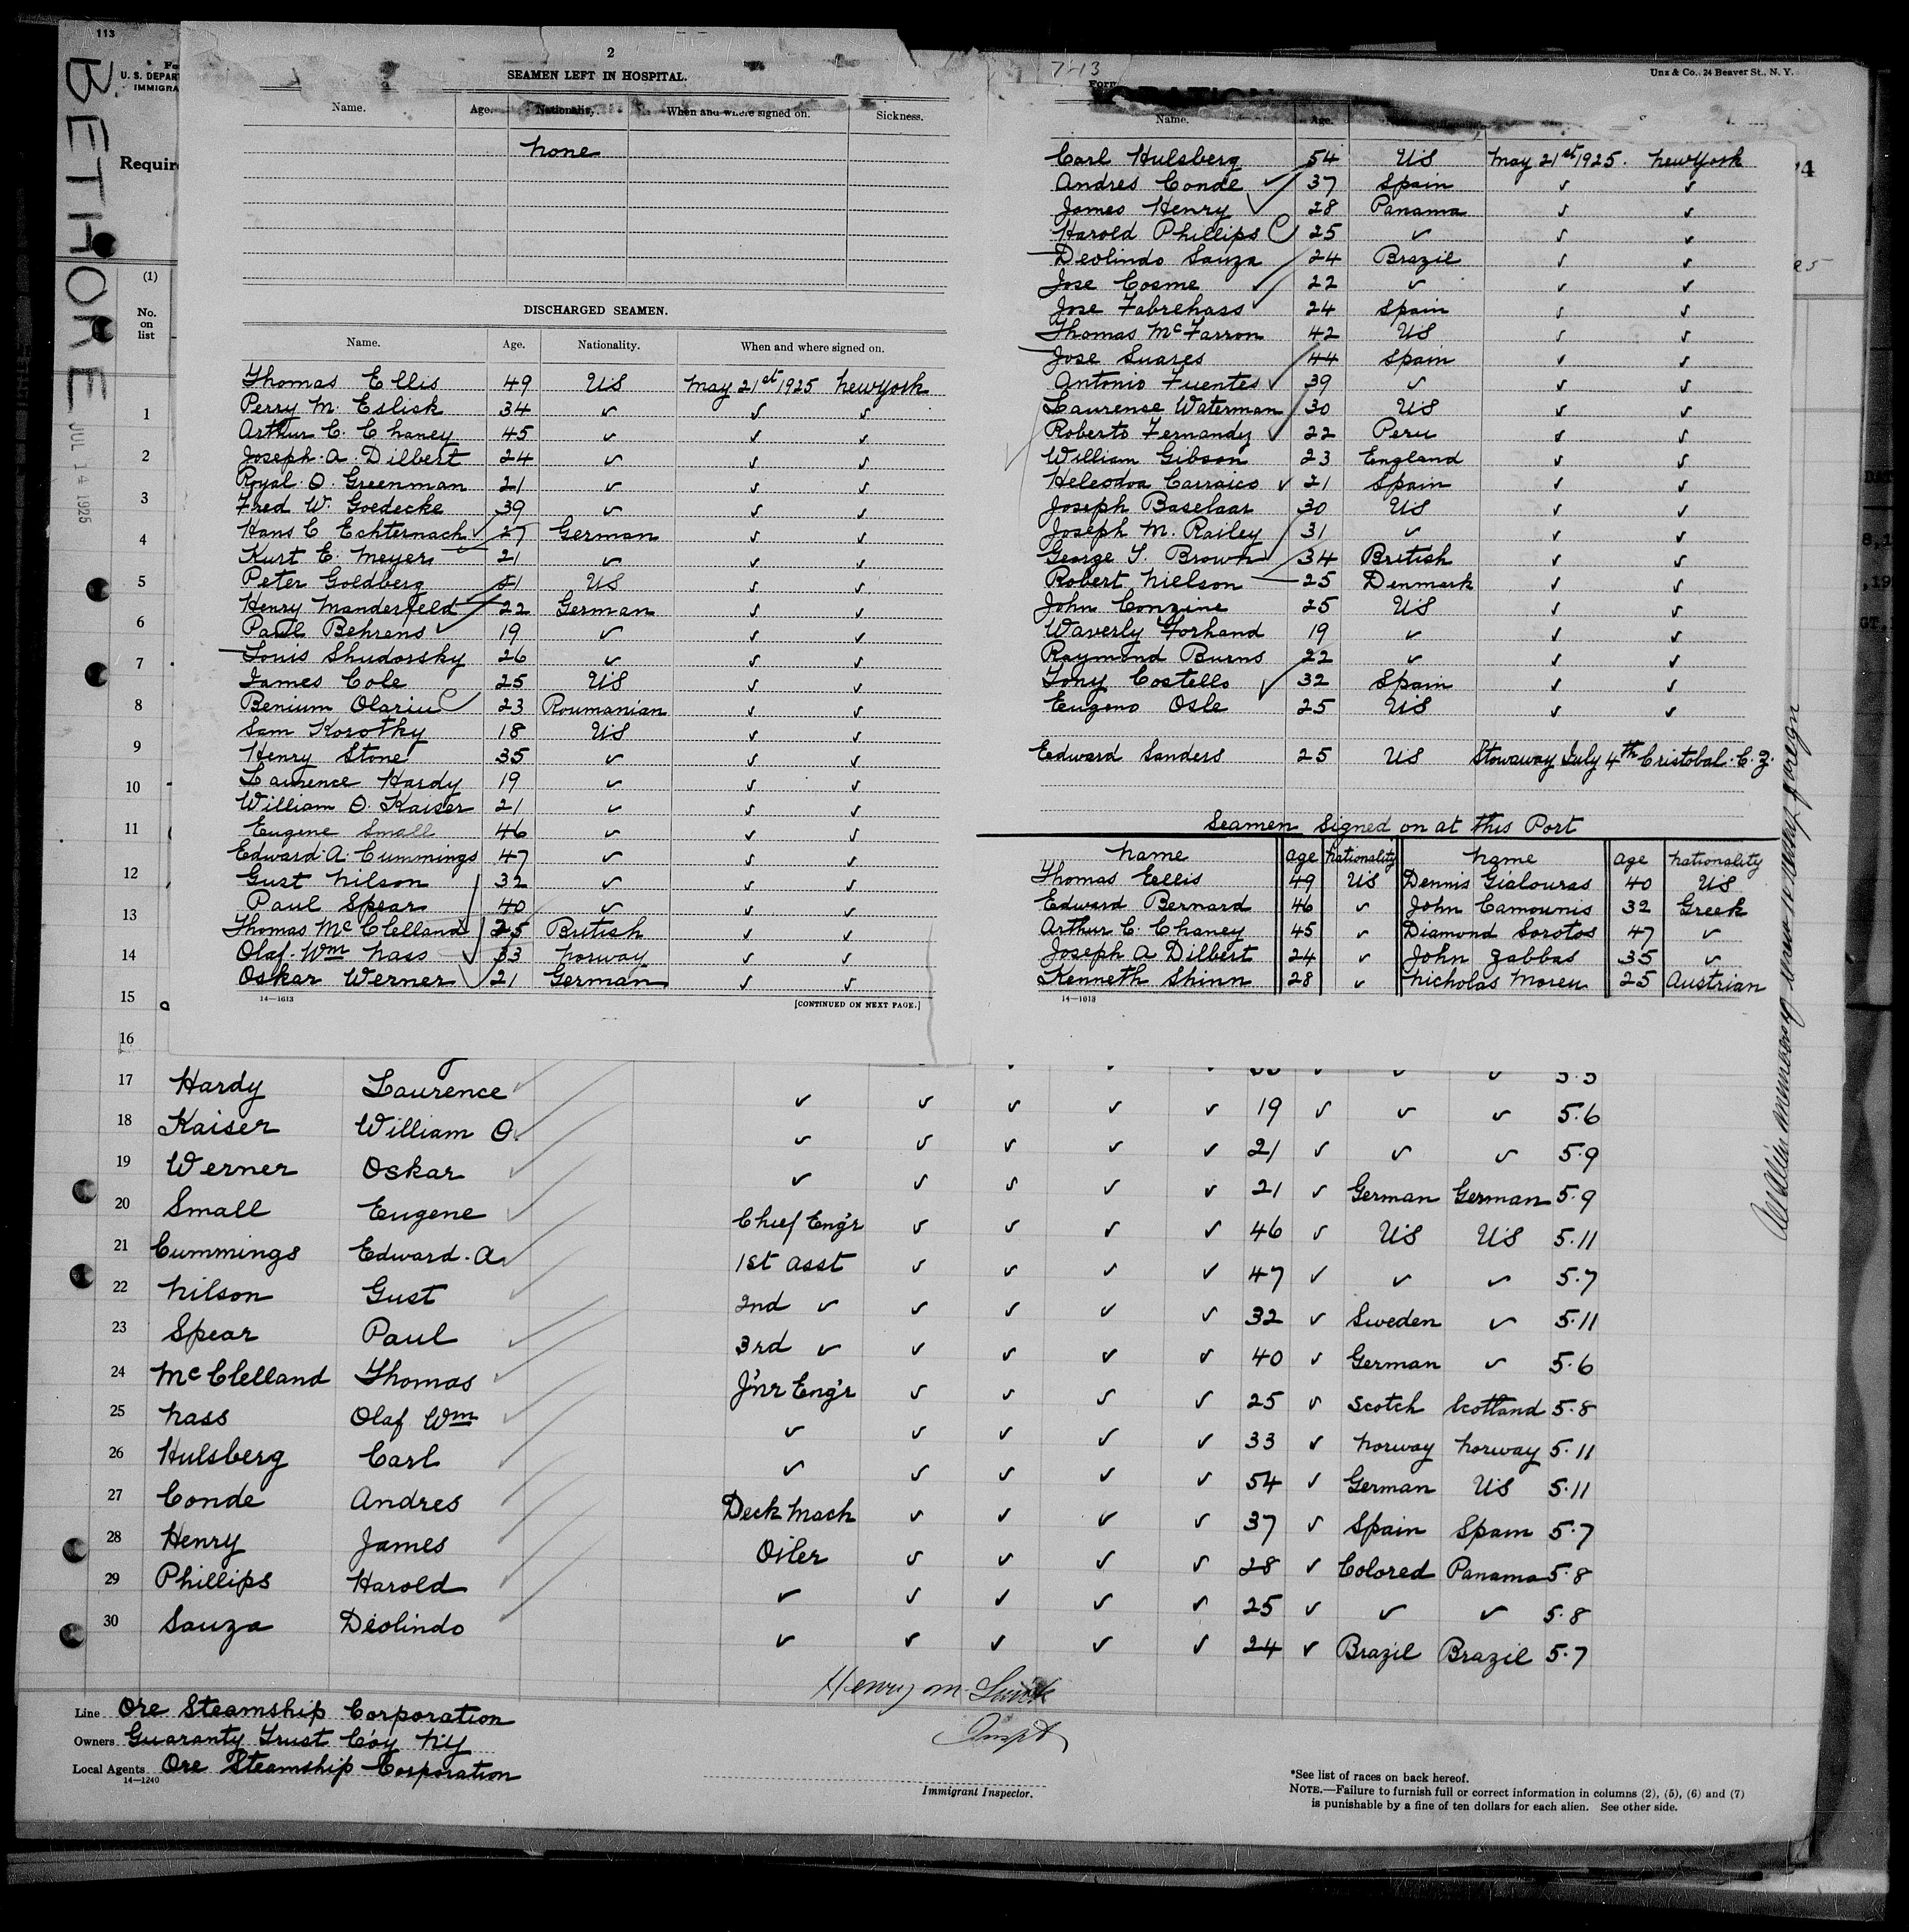 113
BETHORE
JUL 14 1925
U. S. DEPAR
IMMIGRA
Require
(1)
No.
on
list
1
2
3
4
5
6
7
8
9
10
11
12
13
14
15
16
2
SEAMEN LEFT IN HOSPITAL.
Name. Age. Nationality. When and where signed on. Sickness.
None
DISCHARGED SEAMEN.
Name. Age. Nationality. When and where signed on.
Thomas Ellis 49 US May 21st 1925 New York
Perry M. Eslick 34 ✓ ✓ ✓
Arthur C. Chaney 45 ✓ ✓ ✓
Joseph A. Dilbert 24 ✓ ✓ ✓
Royal O. Greenman 21 ✓ ✓ ✓
Fred W. Goedecke 39 ✓ ✓ ✓
Hans C Echternach ✓ 27 German ✓ ✓
Kurt E. Meyer 21 ✓ ✓ ✓
Peter Goldberg 51 US ✓ ✓
Henry Manderfeld 22 German ✓ ✓
Paul Behrens ✓ 19 ✓ ✓ ✓
Louis Shudorsky 26 ✓ ✓ ✓
James Cole 25 US ✓ ✓
Benium Olariu 23 Roumanian ✓ ✓
Sam Korothy 18 US ✓ ✓
Henry Stone 35 ✓ ✓ ✓
Laurence Hardy 19 ✓ ✓ ✓
William O. Kaiser 21 ✓ ✓ ✓
Eugene Small 46 ✓ ✓ ✓
Edward A. Cummings 47 ✓ ✓ ✓
Gust Nilson 32 ✓ ✓ ✓
Paul Spear 40 ✓ ✓ ✓
Thomas McClelland 25 British ✓ ✓
Olaf Wm Nass 33 Norway ✓ ✓
Oskar Werner 21 German ✓ ✓
14—1613 [CONTINUED ON NEXT PAGE.]
743
Unz & Co., 24 Beaver St., N. Y.
Form
Name. Age.
Carl Hulsberg 54 US May 21st 1925. New York
Andres Conde ✓ 37 Spain ✓ ✓
James Henry ✓ 28 Panama ✓ ✓
Harold Phillips 25 ✓ ✓ ✓
Deolindo Sauza 24 Brazil ✓ ✓
Jose Cosme ✓ 22 ✓ ✓ ✓
Jose Fabrehass ✓ 24 Spain ✓ ✓
Thomas McFarron 42 US ✓ ✓
Jose Suares 44 Spain ✓ ✓
Antonio Fuentes ✓ 39 ✓ ✓ ✓
Laurense Waterman 30 US ✓ ✓
Roberto Fernandz ✓ 22 Peru ✓ ✓
William Gibson 23 England ✓ ✓
Heleodoa Carraico ✓ 21 Spain ✓ ✓
Joseph Baselaar 30 US ✓ ✓
Joseph M. Railey 31 ✓ ✓ ✓
George T. Brown ✓ 34 British ✓ ✓
Robert Nielson 25 Denmark ✓ ✓
John Conzine 25 US ✓ ✓
Waverly Forhand 19 ✓ ✓ ✓
Raymond Burns 22 ✓ ✓ ✓
Tony Costello ✓ 32 Spain ✓ ✓
Eugeno Osle 25 US ✓ ✓
Eedward Sanders 25 US Stowaway July 4th Cristobal. C. Z.
Seamen Signed on at this Port
Name age Nationality Name age Nationality
Thomas Eellis 49 US Dennis Gialouras 40 US
Edward Bernard 46 ✓ John Camounis 32 Greek
Arthur C. Chaney 45 ✓ Diamond Sorotos 47 ✓
Joseph A Dilbert 24 ✓ John Zabbas 35 ✓
Kenneth Shinn 28 ✓ Nicholas Moreu 25 Austrian
14—1613
17 Hardy Laurence ✓ ✓ ✓ ✓ ✓ 19 ✓ ✓ ✓ 5.6
18 Kaiser William O. ✓ ✓ ✓ ✓ ✓ 21 ✓ ✓ ✓ 5.9
19 Werner Oskar ✓ ✓ ✓ ✓ ✓ 21 ✓ German German 5.9
20 Small Eugene Chief Eng'r ✓ ✓ ✓ ✓ 46 ✓ US US 5.11
21 Cummings Edward. A. 1st asst ✓ ✓ ✓ ✓ 47 ✓ ✓ ✓ 5.7
22 Nilson Gust 2nd ✓ ✓ ✓ ✓ ✓ 32 ✓ Sweden ✓ 5.11
23 Spear Paul 3rd ✓ ✓ ✓ ✓ ✓ 40 ✓ German ✓ 5.6
24 McClelland Thomas J'nr Eng'r ✓ ✓ ✓ ✓ 25 ✓ Scotch Scotland 5.8
25 Nass Olaf Wm ✓ ✓ ✓ ✓ ✓ 33 ✓ Norway Norway 5.11
26 Hulsberg Carl ✓ ✓ ✓ ✓ ✓ 54 ✓ German US 5.11
27 Conde Andres Deck Mach ✓ ✓ ✓ ✓ 37 ✓ Spain Spain 5.7
28 Henry James Oiler ✓ ✓ ✓ ✓ 28 ✓ Colored Panama 5.8
29 Phillips Harold ✓ ✓ ✓ ✓ ✓ 25 ✓ ✓ ✓ 5.8
30 Sauza Deolindo ✓ ✓ ✓ ✓ ✓ 24 ✓ Brazil Brazil 5.7
Henry M.
Inspt
Line Ore Steamship Corporation
Owners Guaranty Trust Co'y NY
Local Agents Ore Steamship Corporation
14—1240
Immigrant Inspector.
*See list of races on back hereof.
NOTE.—Failure to furnish full or correct information in columns (2), (5), (6) and (7)
is punishable by a fine of ten dollars for each alien. See other side.